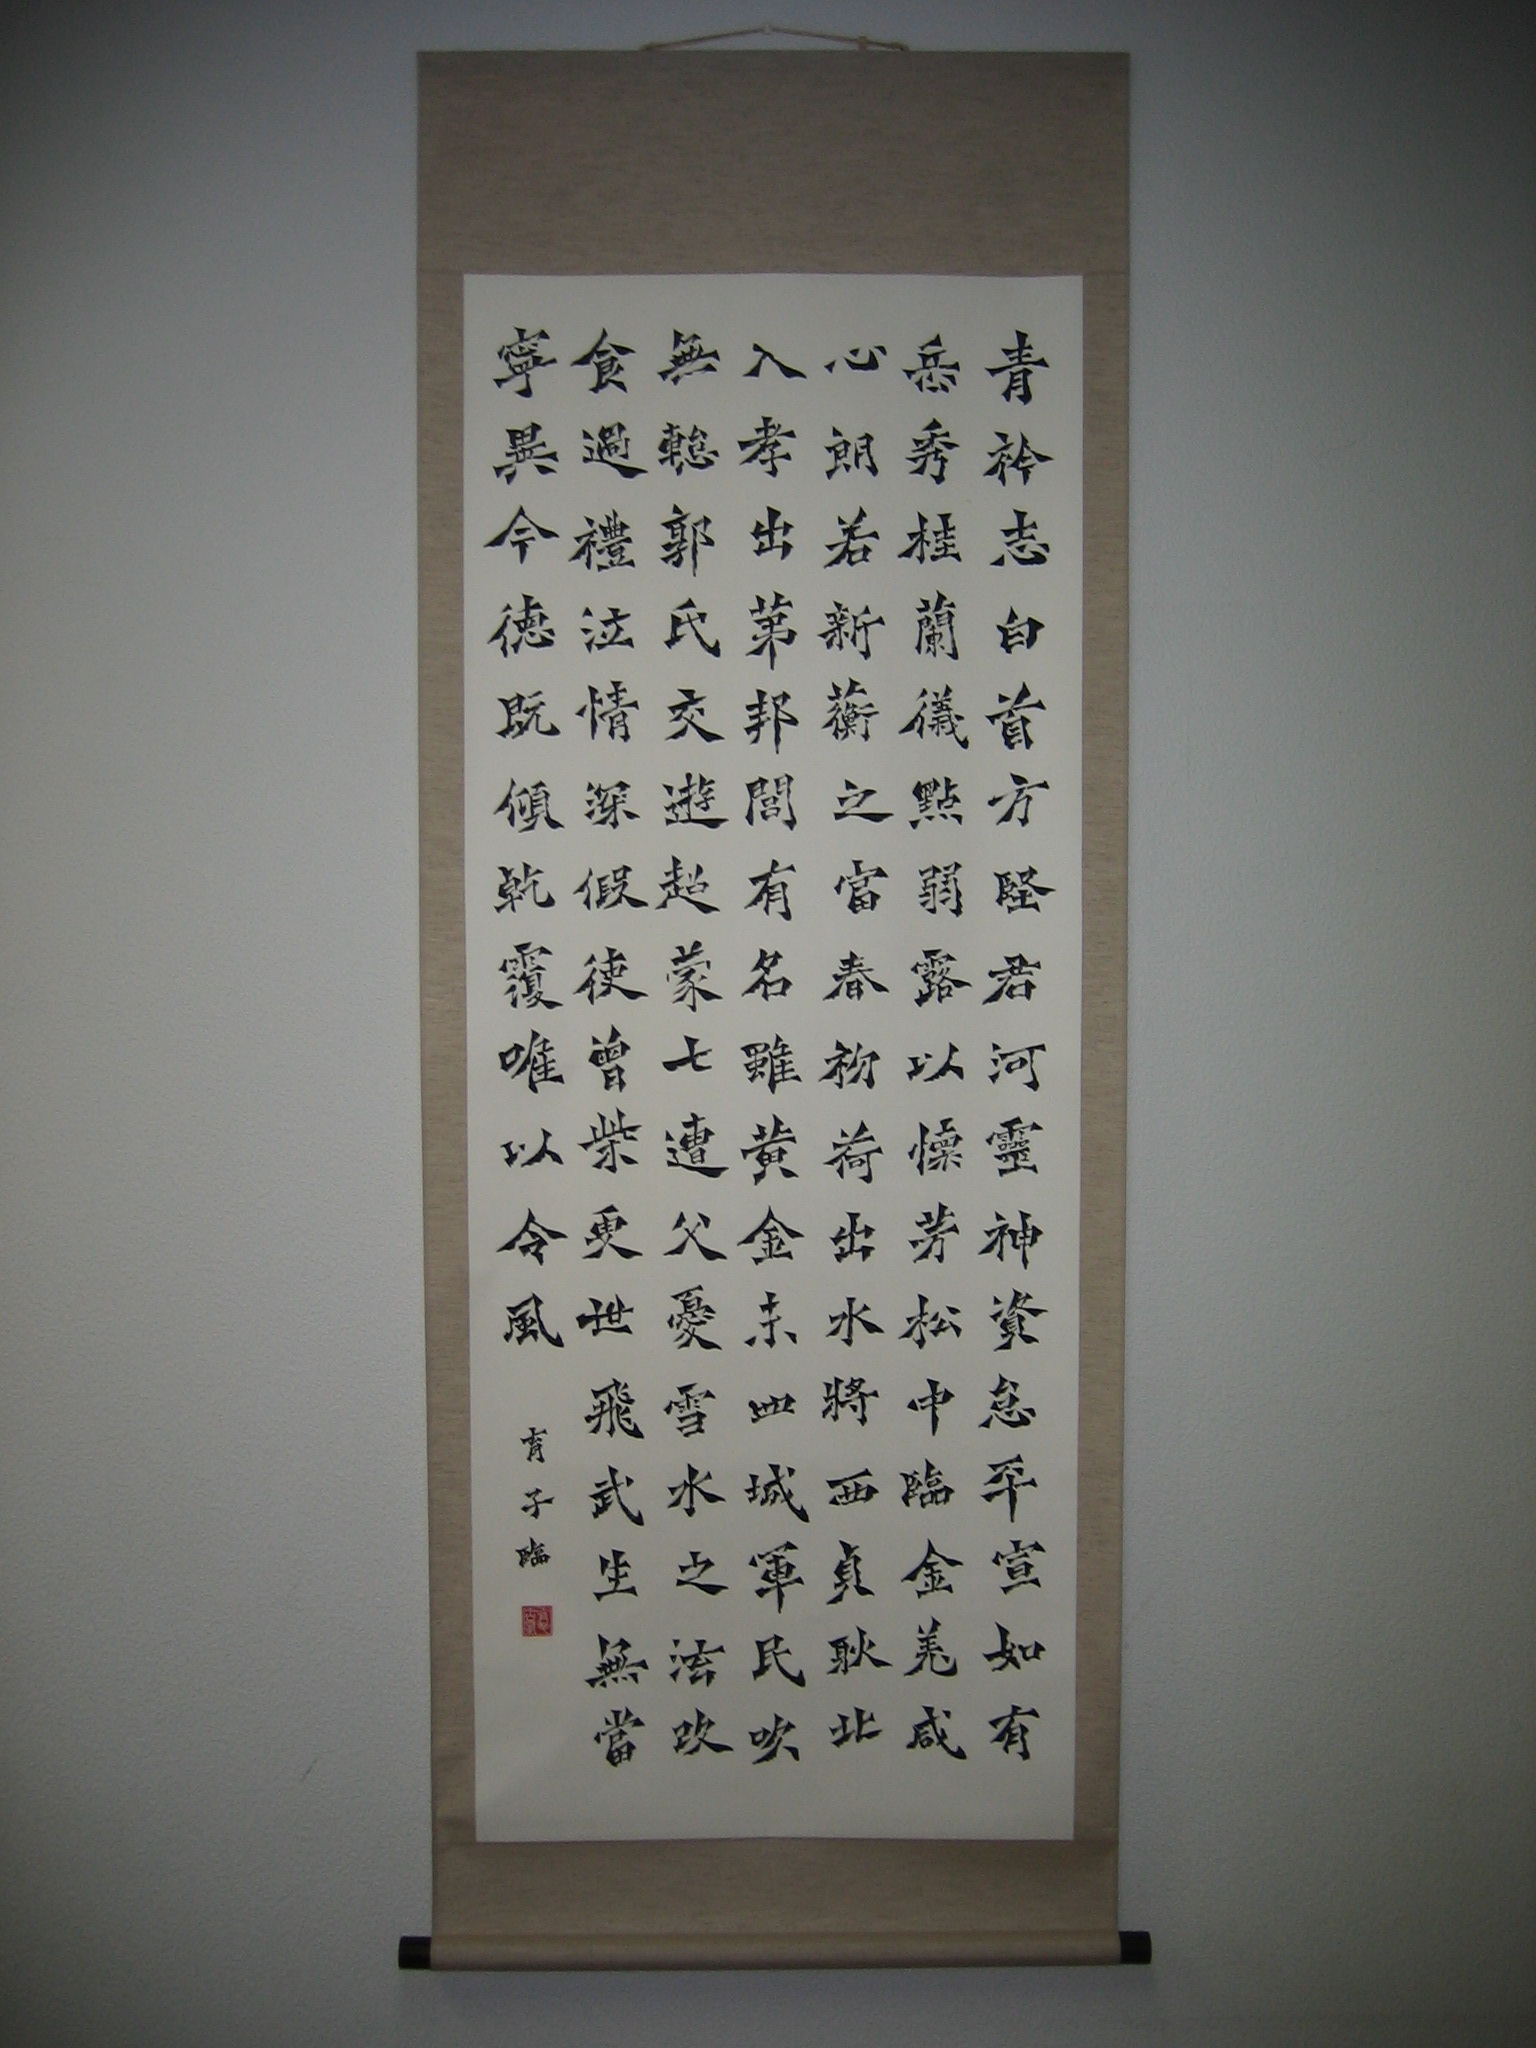 青衿志白首方堅君河靈神資忽平宣如有
岳秀桂蘭儀點弱露以懷芳松中臨金羌咸
心朗若新蘅之當春初荷出水將西貞耿北
入孝出第邦閭有名雖黃金未四城軍民吹
無愁郭氏交遊超蒙七遭父憂雪水之法改
食過禮泣情深假使曾柴更世飛武生無當
寧異今德既傾乾覆唯以令風
育子臨